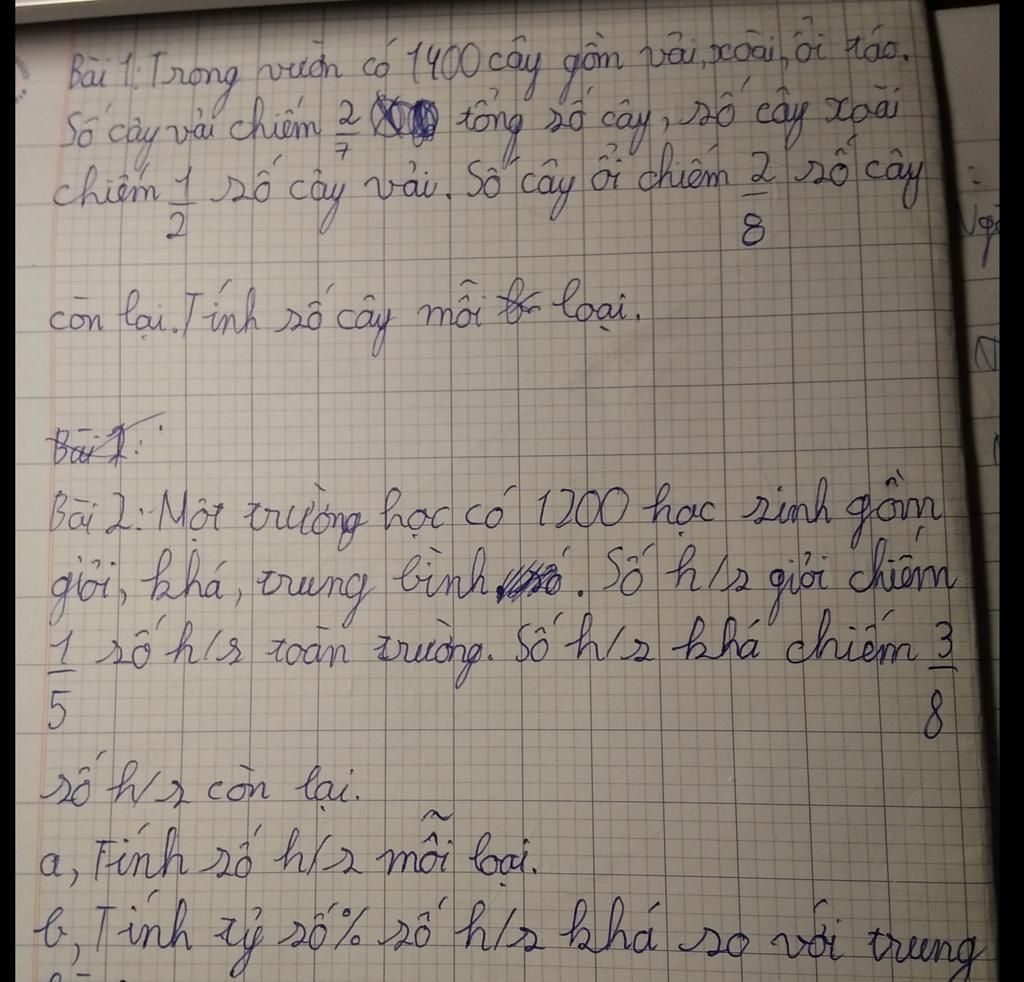 Bài 1: Trong vườn có 1400 cây gồm vải, xoài, ổi táo.
Số cây vải chiếm 2/7 tổng số cây, số cây xoài
chiếm 1/2 số cây vải. Số cây ổi chiếm 2/8 số cây
còn lại. Tính số cây mỗi loại.
Bài 1:
Bài 2: Một trường học có 1200 học sinh gồm
giỏi, khá, trung bình. Số h/s giỏi chiếm
1/5 số h/s toàn trường. Số h/s khá chiếm 3/8
số h/s còn lại.
a, Tính số h/s mỗi loại.
b, Tính tỷ số % số h/s khá so với trung